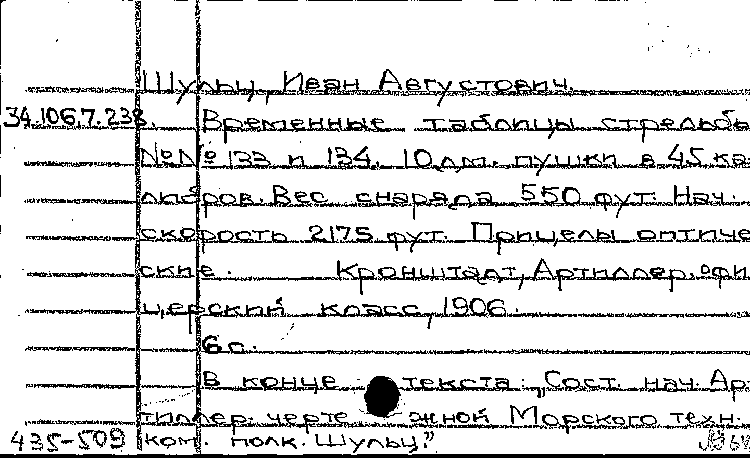 Шульц, Иван Августович.
34.106.7.238. Временные таблицы стрельбы
№№ 133 и 134. 10 дм. пушки в 45 ка-
либров. Вес снаряда 550 фут. Нач.
скорость 2175 фут. Прицелы оптиче-
ские. Кронштадт, Артиллер. офи-
церский класс, 1906.
6 с.
В конце текста: "Сост. нач. Ар-
тиллер. черте жной Морского техн.
435-509 ком. полк. Шульц."